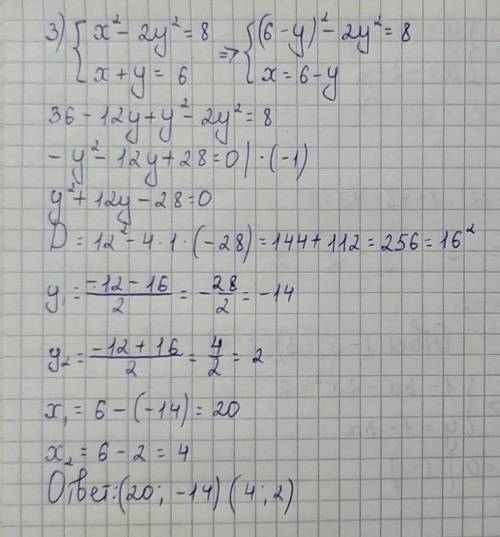 3) { x² - 2y² = 8 => { (6 - y)² - 2y² = 8
x + y = 6 x = 6 - y
36 - 12y + y² - 2y² = 8
- y² - 12y + 28 = 0 | · (-1)
y² + 12y - 28 = 0
D = 12² - 4 · 1 · (-28) = 144 + 112 = 256 = 16²
y₁ = (-12 - 16)/2 = -28/2 = -14
y₂ = (-12 + 16)/2 = 4/2 = 2
x₁ = 6 - (-14) = 20
x₂ = 6 - 2 = 4
Ответ: (20; -14) (4; 2)